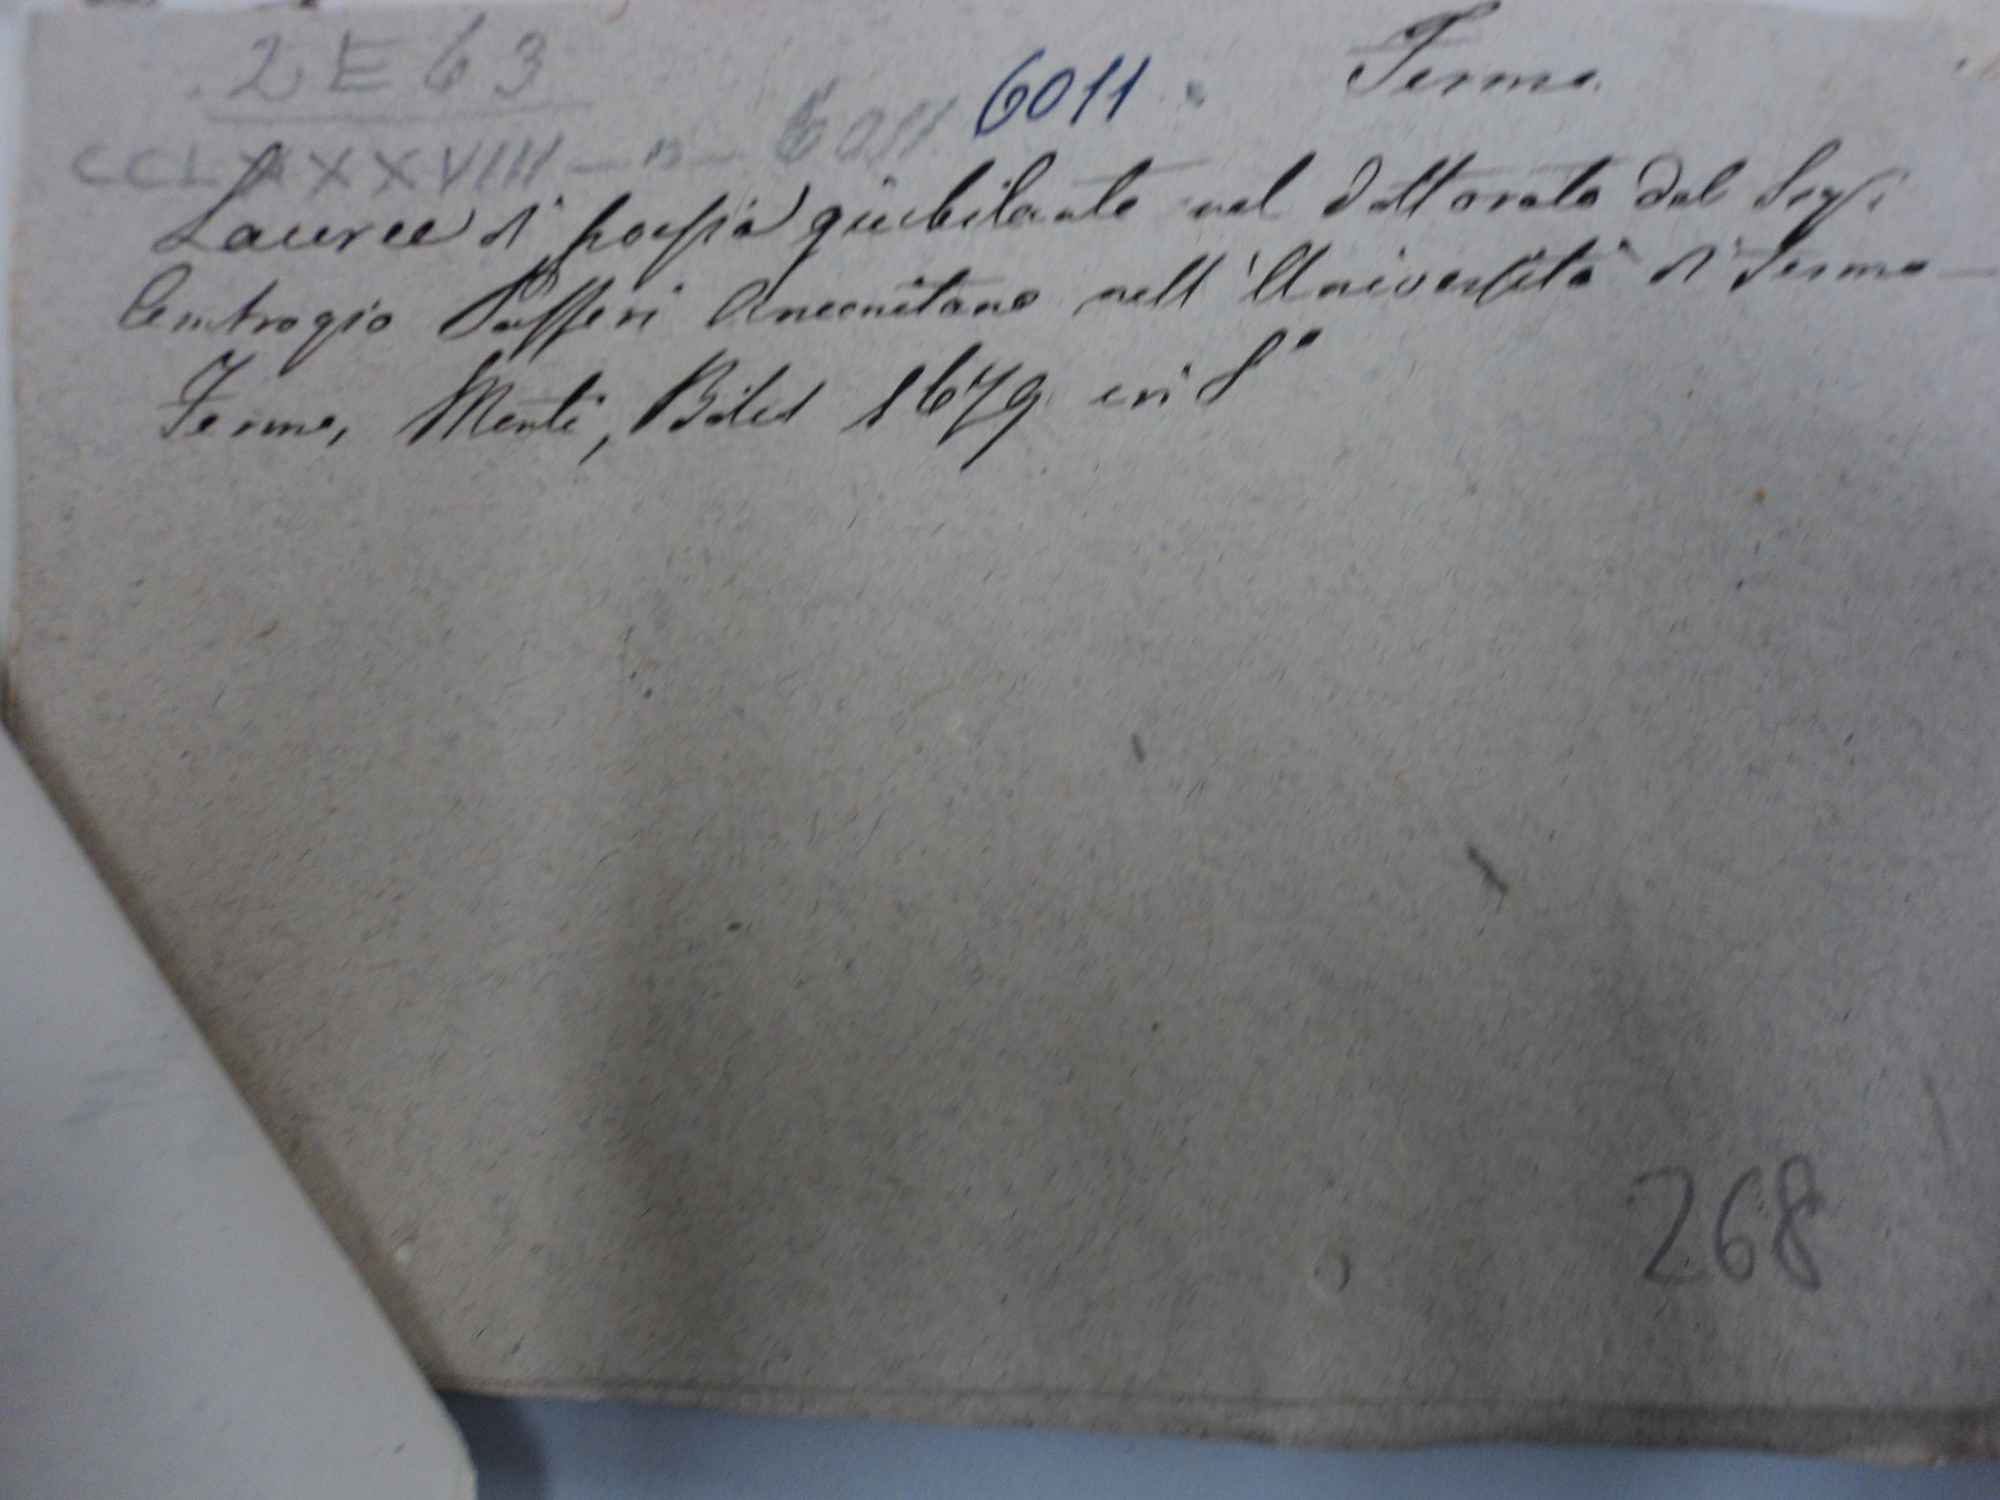 2 E 63
6011. Fermo.
CCLXXXVIII — n — 6011
Lauree di poesia giubilante nel dottorato del Sigr.
Ambrogio Pafferi Anconitano nell'Università di Fermo —
Fermo, Monti, Bolis 1679 in 8°
268